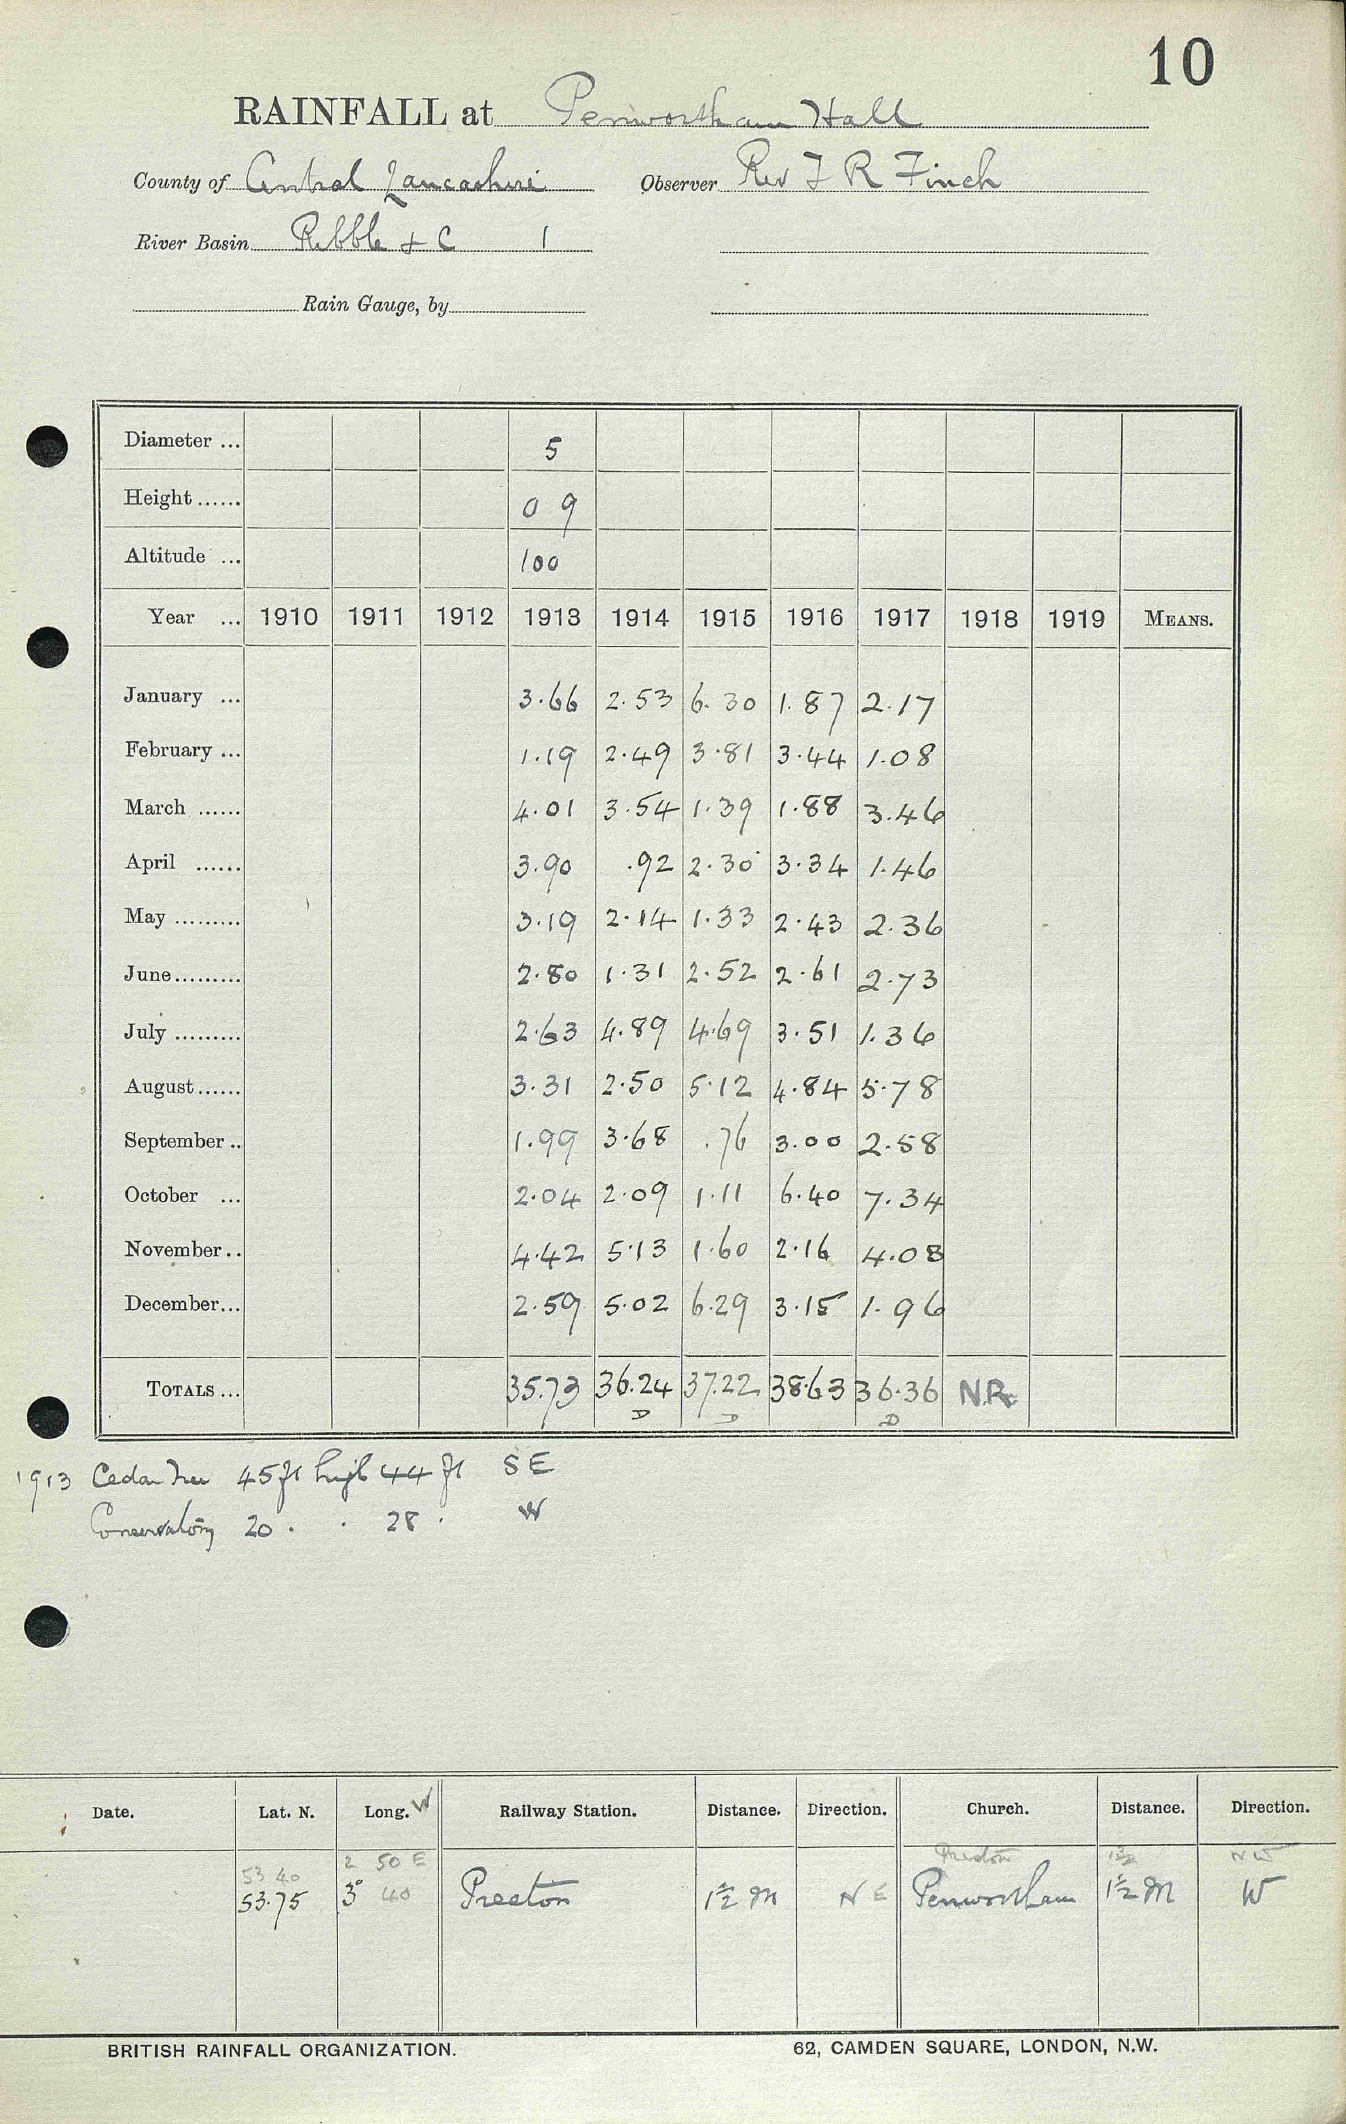 10
RAINFALL at Penwortham Hall
County of Central Lancashire Observer Rev F R Finch
River Basin Ribble & C 1
Rain Gauge, by
Diameter ... 5
Height ...... 0 9
Altitude ... 100
Year ... 1910 1911 1912 1913 1914 1915 1916 1917 1918 1919 MEANS.
January ... 3.66 2.53 6.30 1.87 2.17
February ... 1.19 2.49 3.81 3.44 1.08
March ...... 4.01 3.54 1.39 1.88 3.46
April ...... 3.90 .92 2.30 3.34 1.46
May ......... 3.19 2.14 1.33 2.43 2.36
June ......... 2.80 1.31 2.52 2.61 2.73
July ......... 2.63 4.89 4.69 3.51 1.36
August ...... 3.31 2.50 5.12 4.84 5.78
September .. 1.99 3.68 .76 3.00 2.58
October ... 2.04 2.09 1.11 6.40 7.34
November .. 4.42 5.13 1.60 2.16 4.08
December ... 2.59 5.02 6.29 3.15 1.96
TOTALS ... 35.73 36.24 37.22 38.63 36.36 N.R.
D D D
1913 Cedar Tree 45 ft high 44 ft S E
Conservatory 20 . . 28 . W
Date. Lat. N. Long. W Railway Station. Distance. Direction. Church. Distance. Direction.
53 40 2 50 E Preston 1½ N W
53.75 3° 40 Preston 1½ M N E Penwortham 1½ M W
BRITISH RAINFALL ORGANIZATION. 62, CAMDEN SQUARE, LONDON, N.W.